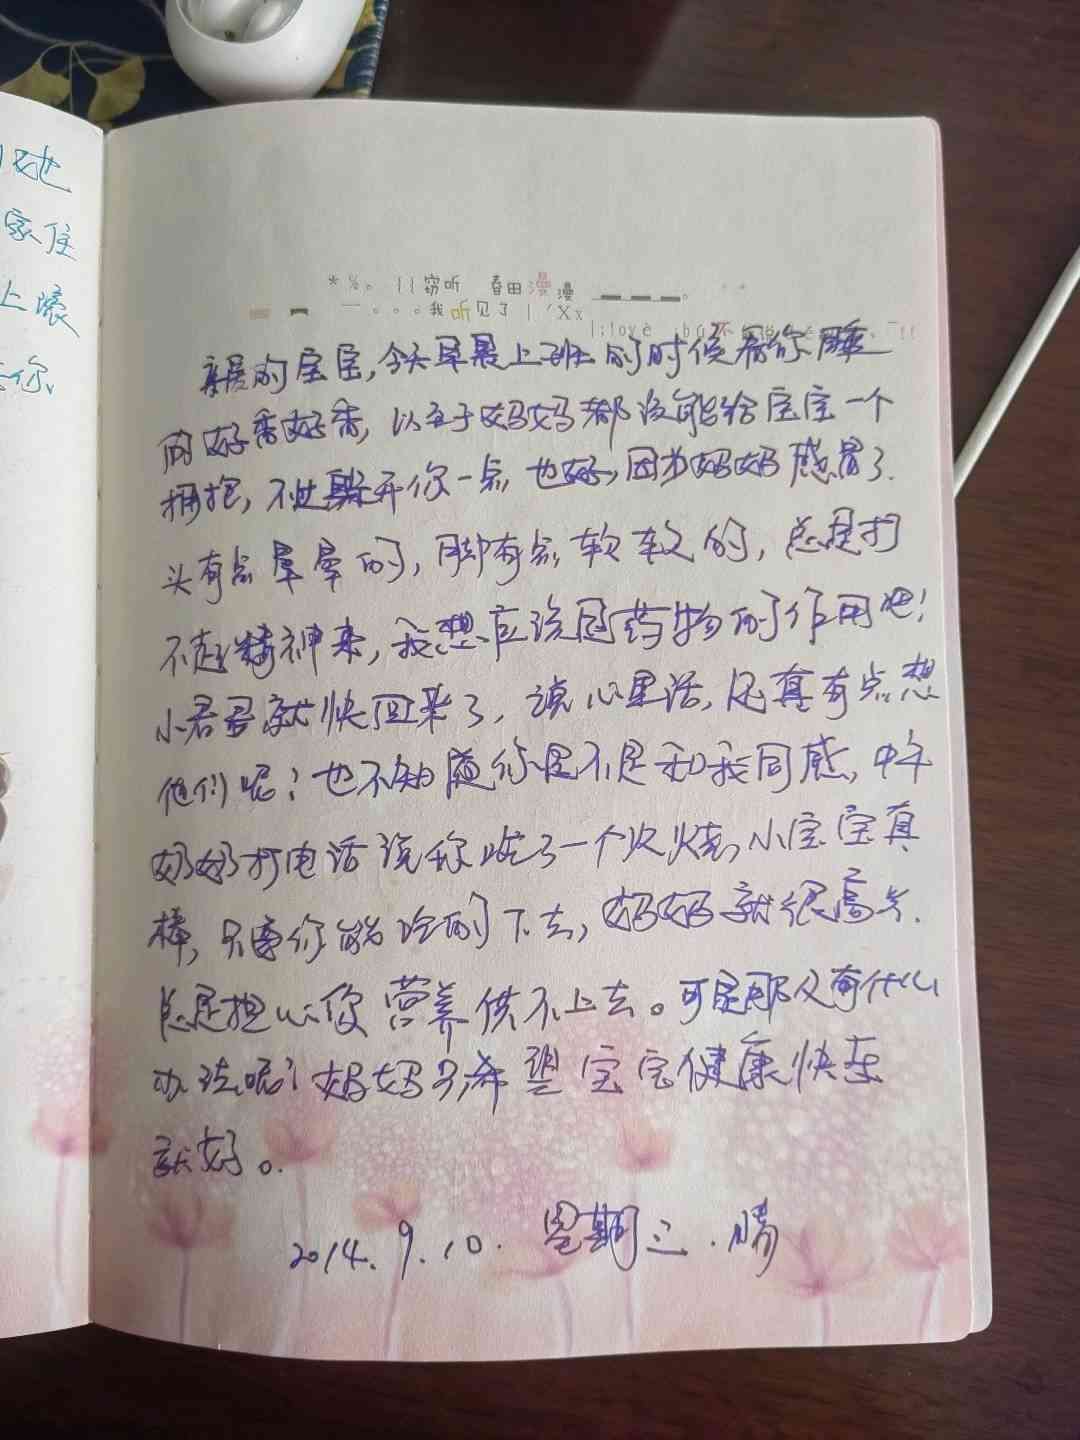 她
家住
上濠
你
*%。 窃听 春田漫漫
一。。。我听见了 | ˊXx
|:love
亲爱的宝宝,今天早晨上班的时候看你睡
的好香好香,以至于妈妈都没能给宝宝一个
拥抱,不过躲开你一点也好,因为妈妈感冒了.
头有点晕晕的,脚有点软软的,总是打
不起精神来,我想应该是药物的作用吧!
小君君就快回来了,说心里话,还真有点想
他们呢!也不知道你是不是和我同感,中午
奶奶打电话说你吃了一个火烧,小宝宝真
棒,只要你能吃的下去,妈妈就很高兴.
总是担心你营养供不上去。可是那又有什么
办法呢?妈妈只希望宝宝健康快乐
就好。
2014.9.10.星期三.晴